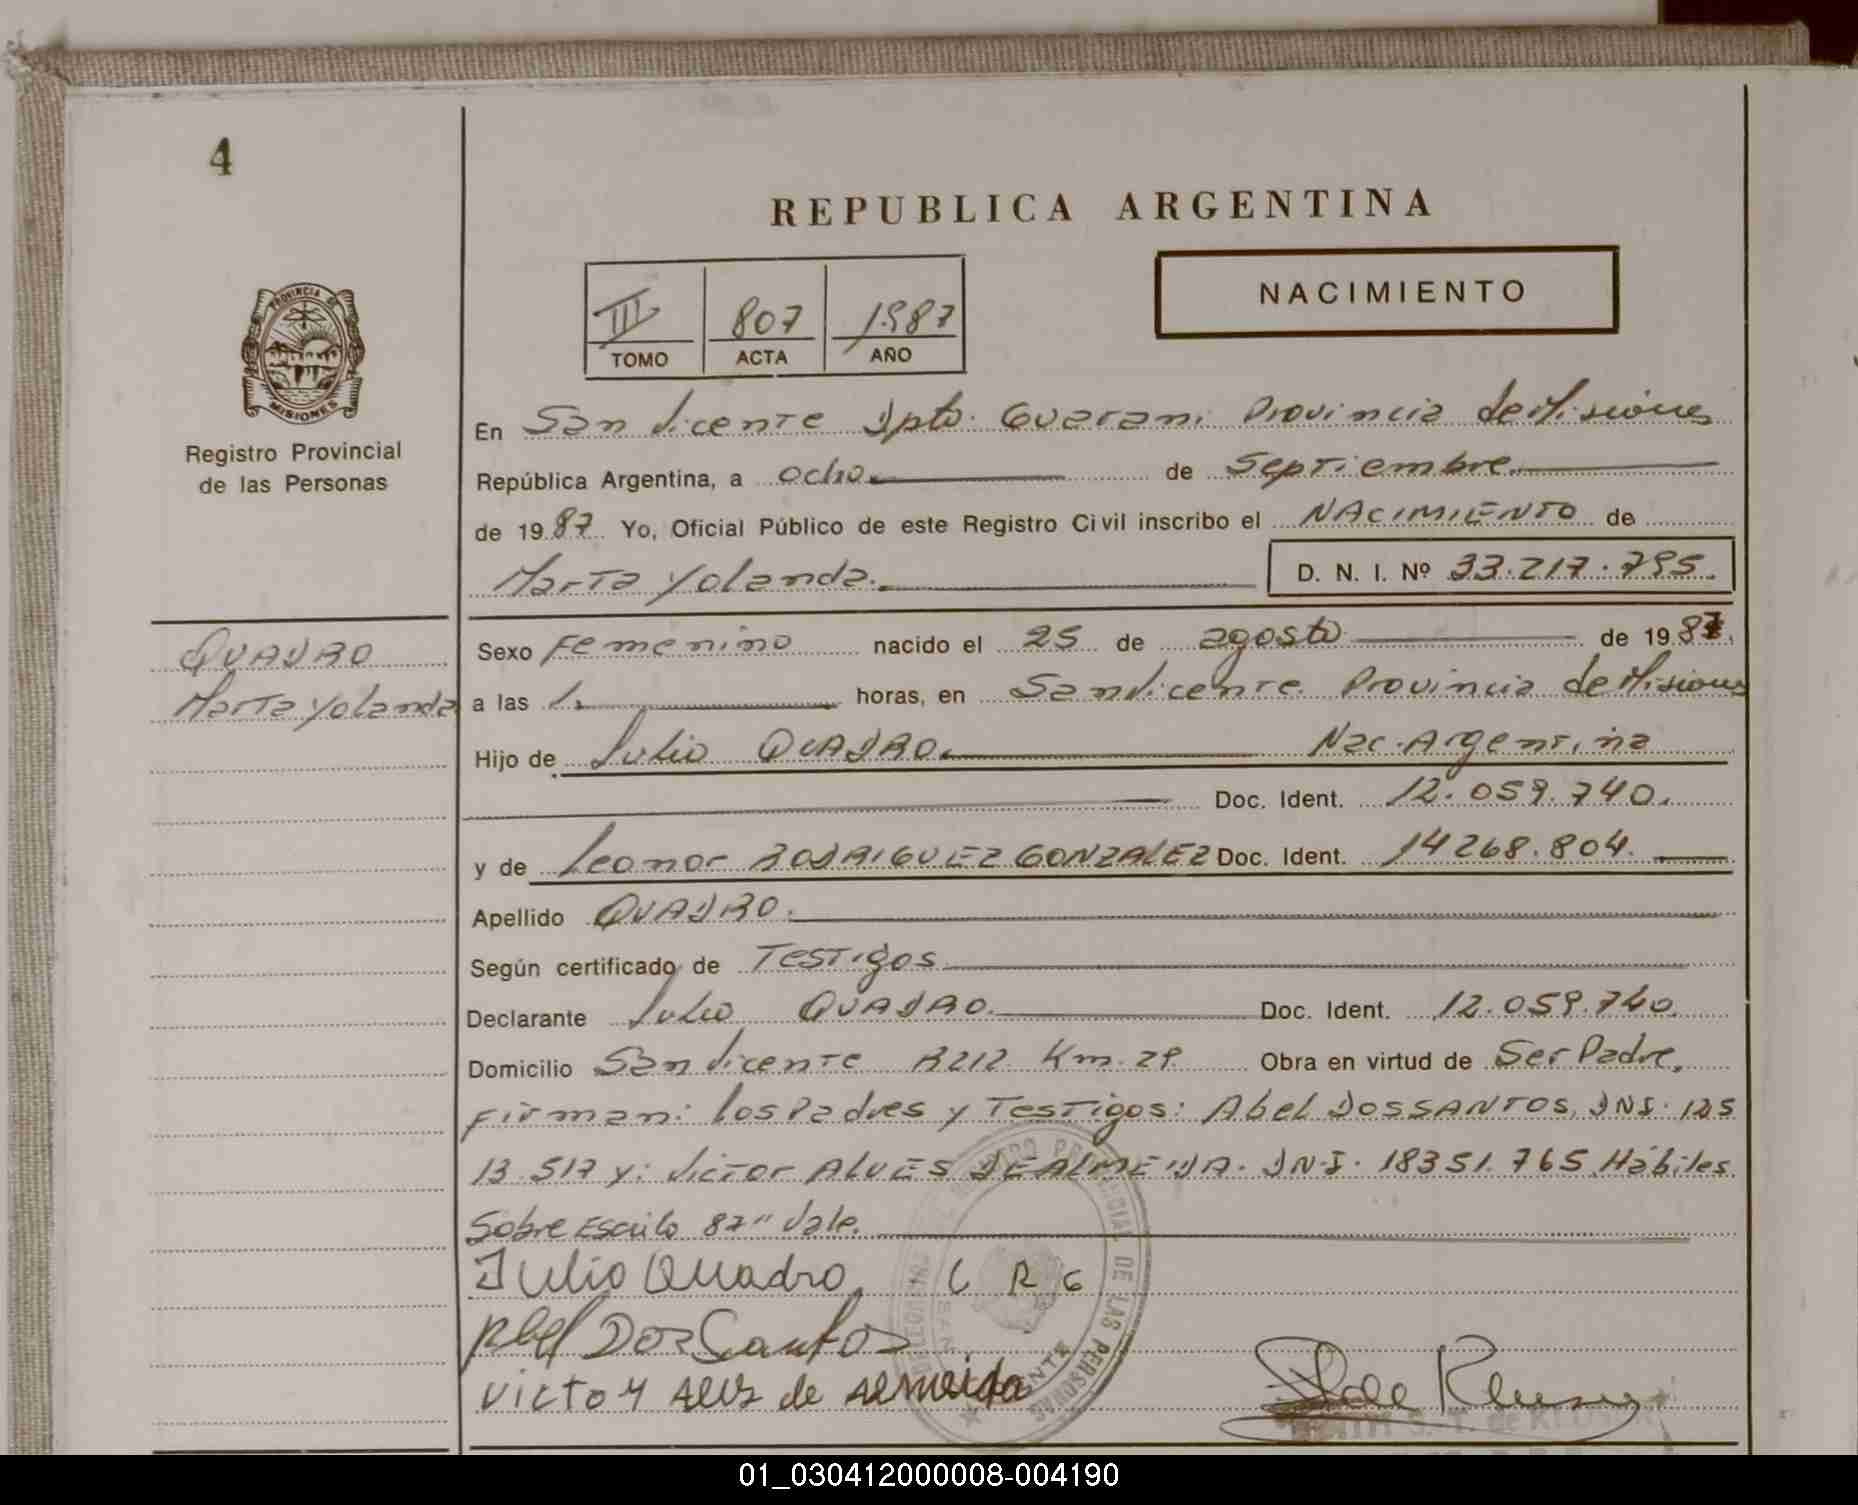 4
REPUBLICA ARGENTINA
NACIMIENTO
III 807 1987
TOMO ACTA AÑO
PROVINCIA DE
MISIONES
Registro Provincial
de las Personas
En San Vicente Dpto. Guarani Provincia de Misiones
República Argentina, a ocho. de Septiembre.
de 1987 Yo, Oficial Público de este Registro Civil inscribo el NACIMIENTO de
Marta Yolanda. D. N. I. Nº 33.217.795.
QUADRO
Marta Yolanda
Sexo Femenino nacido el 25 de agosto de 1987.
a las 1. horas, en San Vicente. Provincia de Misiones
Hijo de Julio QUADRO. Nac. Argentina
Doc. Ident. 12.059.740.
y de Leonor RODRIGUEZ GONZALEZ Doc. Ident. 14268.804.
Apellido QUADRO.
Según certificado de Testigos
Declarante Julio QUADRO. Doc. Ident. 12.059.740.
Domicilio San Vicente R212 Km. 29. Obra en virtud de Ser Padre.
Firman: los Padres y Testigos: Abel DOSSANTOS, DNI. 125
13.517 y: Victor ALVES DE ALMEIDA. DNI. 18351.765 Hábiles.
Sobre Escrito 87" Vale.
Julio Quadro L R G
Abel Dos Santos
Victor Alves de Almeida
REGISTRO PROVINCIAL DE LAS PERSONAS
01_030412000008-004190